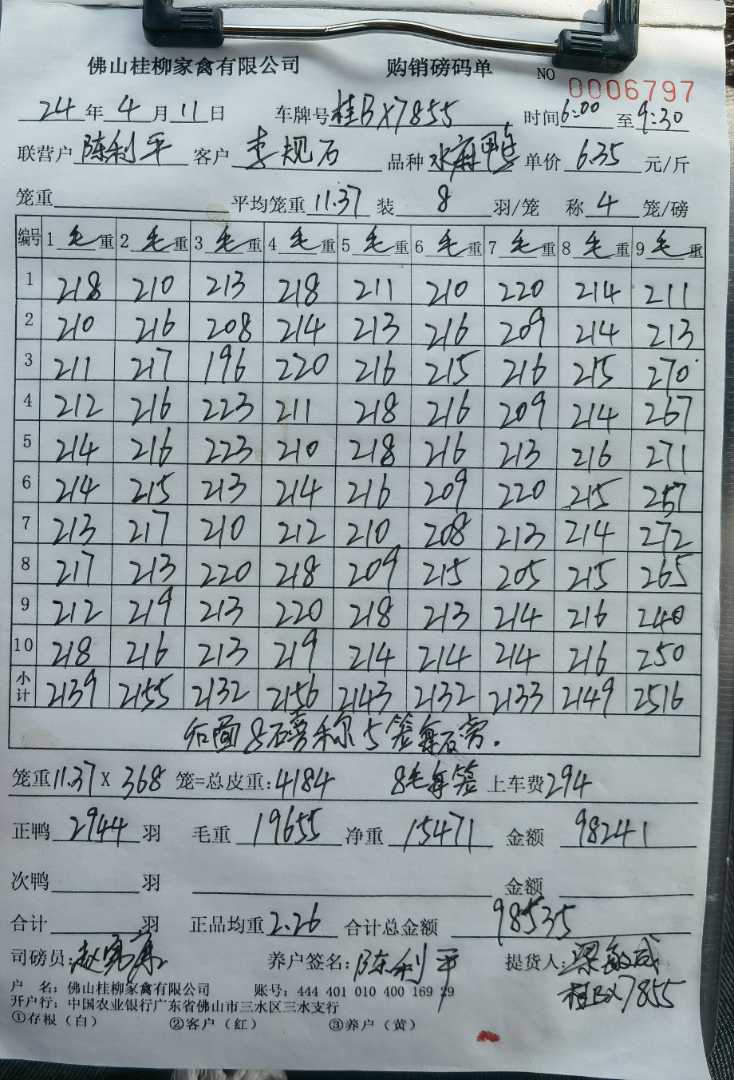 佛山桂柳家禽有限公司 购销磅码单 NO 0006797
24 年 4 月 11 日 车牌号 桂BX7855 时间 6:00 至 9:30
联营户 陈利平 客户 李规石 品种 水麻鸭 单价 6.35 元/斤
笼重 平均笼重 11.37 装 8 羽/笼 称 4 笼/磅
编号 1 毛重 2 毛重 3 毛重 4 毛重 5 毛重 6 毛重 7 毛重 8 毛重 9 毛重
1 218 210 213 218 211 210 220 214 211
2 210 216 208 214 213 216 209 214 213
3 211 217 196 220 216 215 216 215 270
4 212 216 223 211 218 216 209 214 267
5 214 216 223 210 218 216 213 216 271
6 214 215 213 214 216 209 220 215 257
7 213 217 210 212 210 208 213 214 272
8 217 213 220 218 209 215 205 215 265
9 212 219 213 220 218 213 214 216 240
10 218 216 213 219 214 214 214 216 250
小计 2139 2155 2132 2156 2143 2132 2133 2149 2516
后面8磅称5笼每磅.
笼重 11.37 X 368 笼=总皮重: 4184 8毛每笼 上车费 294
正鸭 2944 羽 毛重 19655 净重 15471 金额 98241
次鸭 羽 金额
合计 羽 正品均重 2.26 合计总金额 98535
司磅员: 养户签名: 陈利平 提货人: 梁敏成
桂BX7855
户 名: 佛山桂柳家禽有限公司 账号: 444 401 010 400 169 29
开户行: 中国农业银行广东省佛山市三水区三水支行
①存根（白） ②客户（红） ③养户（黄）